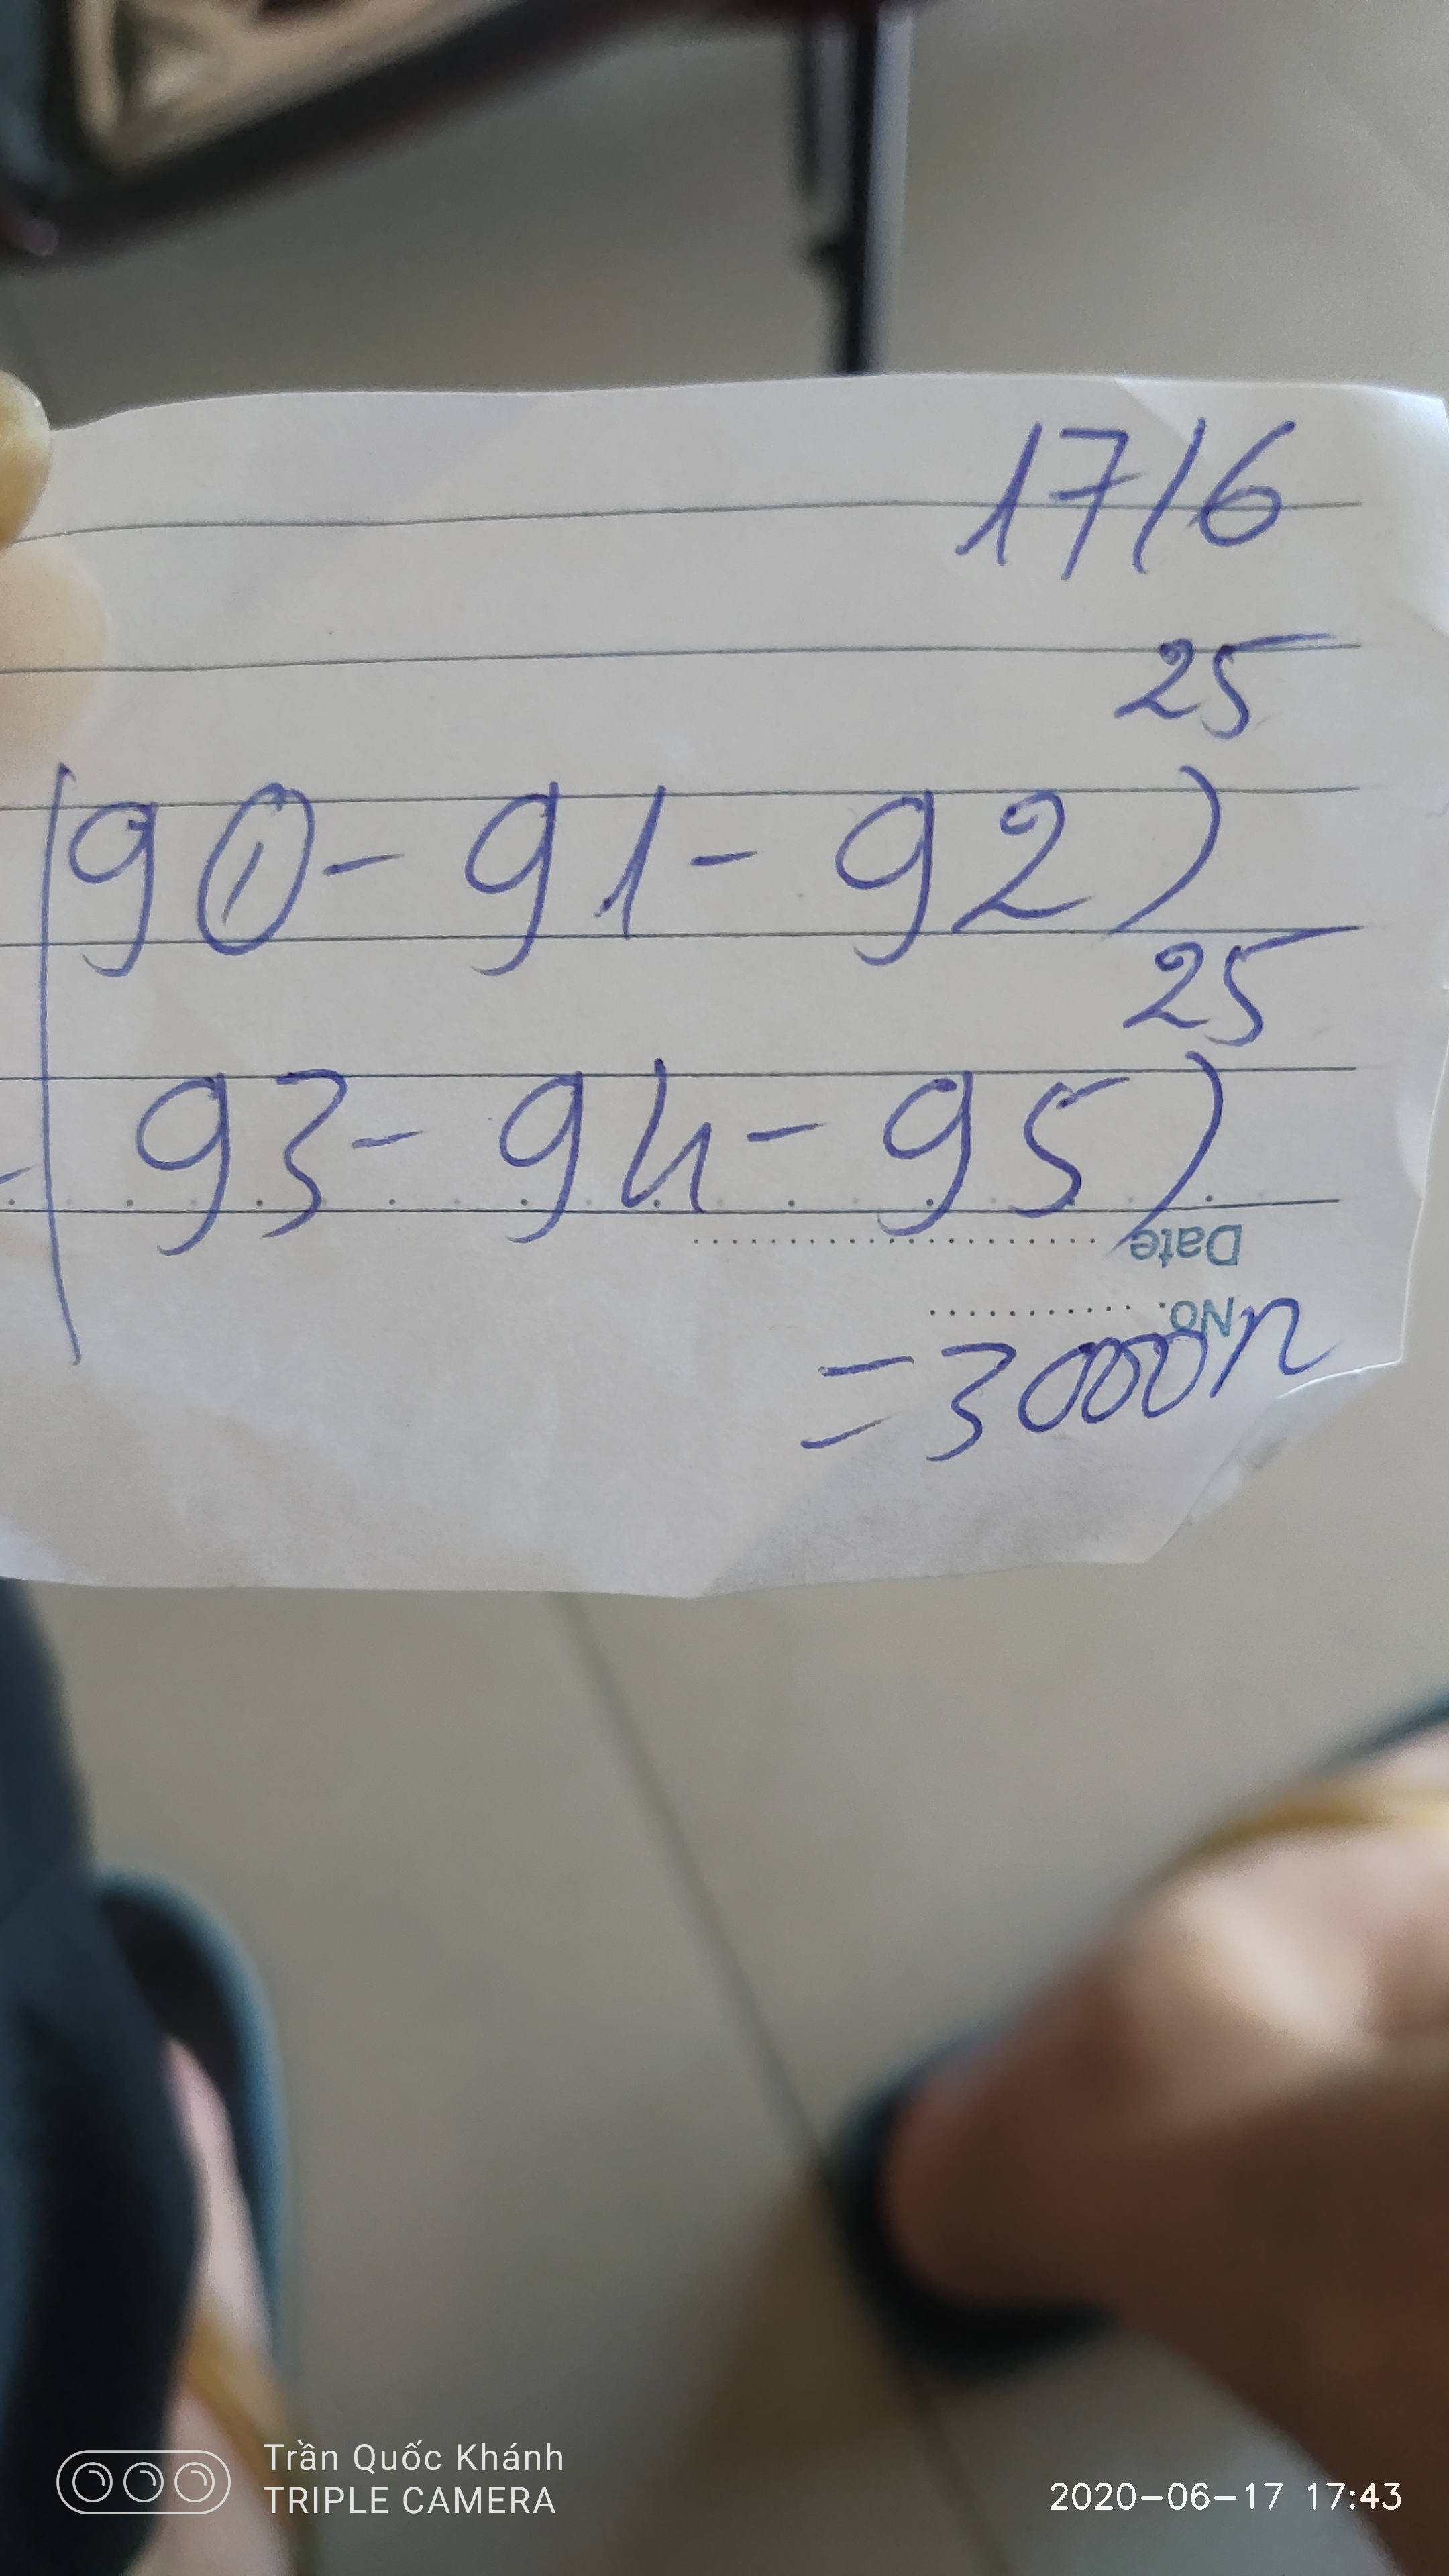 17/6
25
90 - 91 - 92)
25
93 - 94 - 95)
Date
No.
= 3000n
Trần Quốc Khánh
TRIPLE CAMERA
2020-06-17 17:43